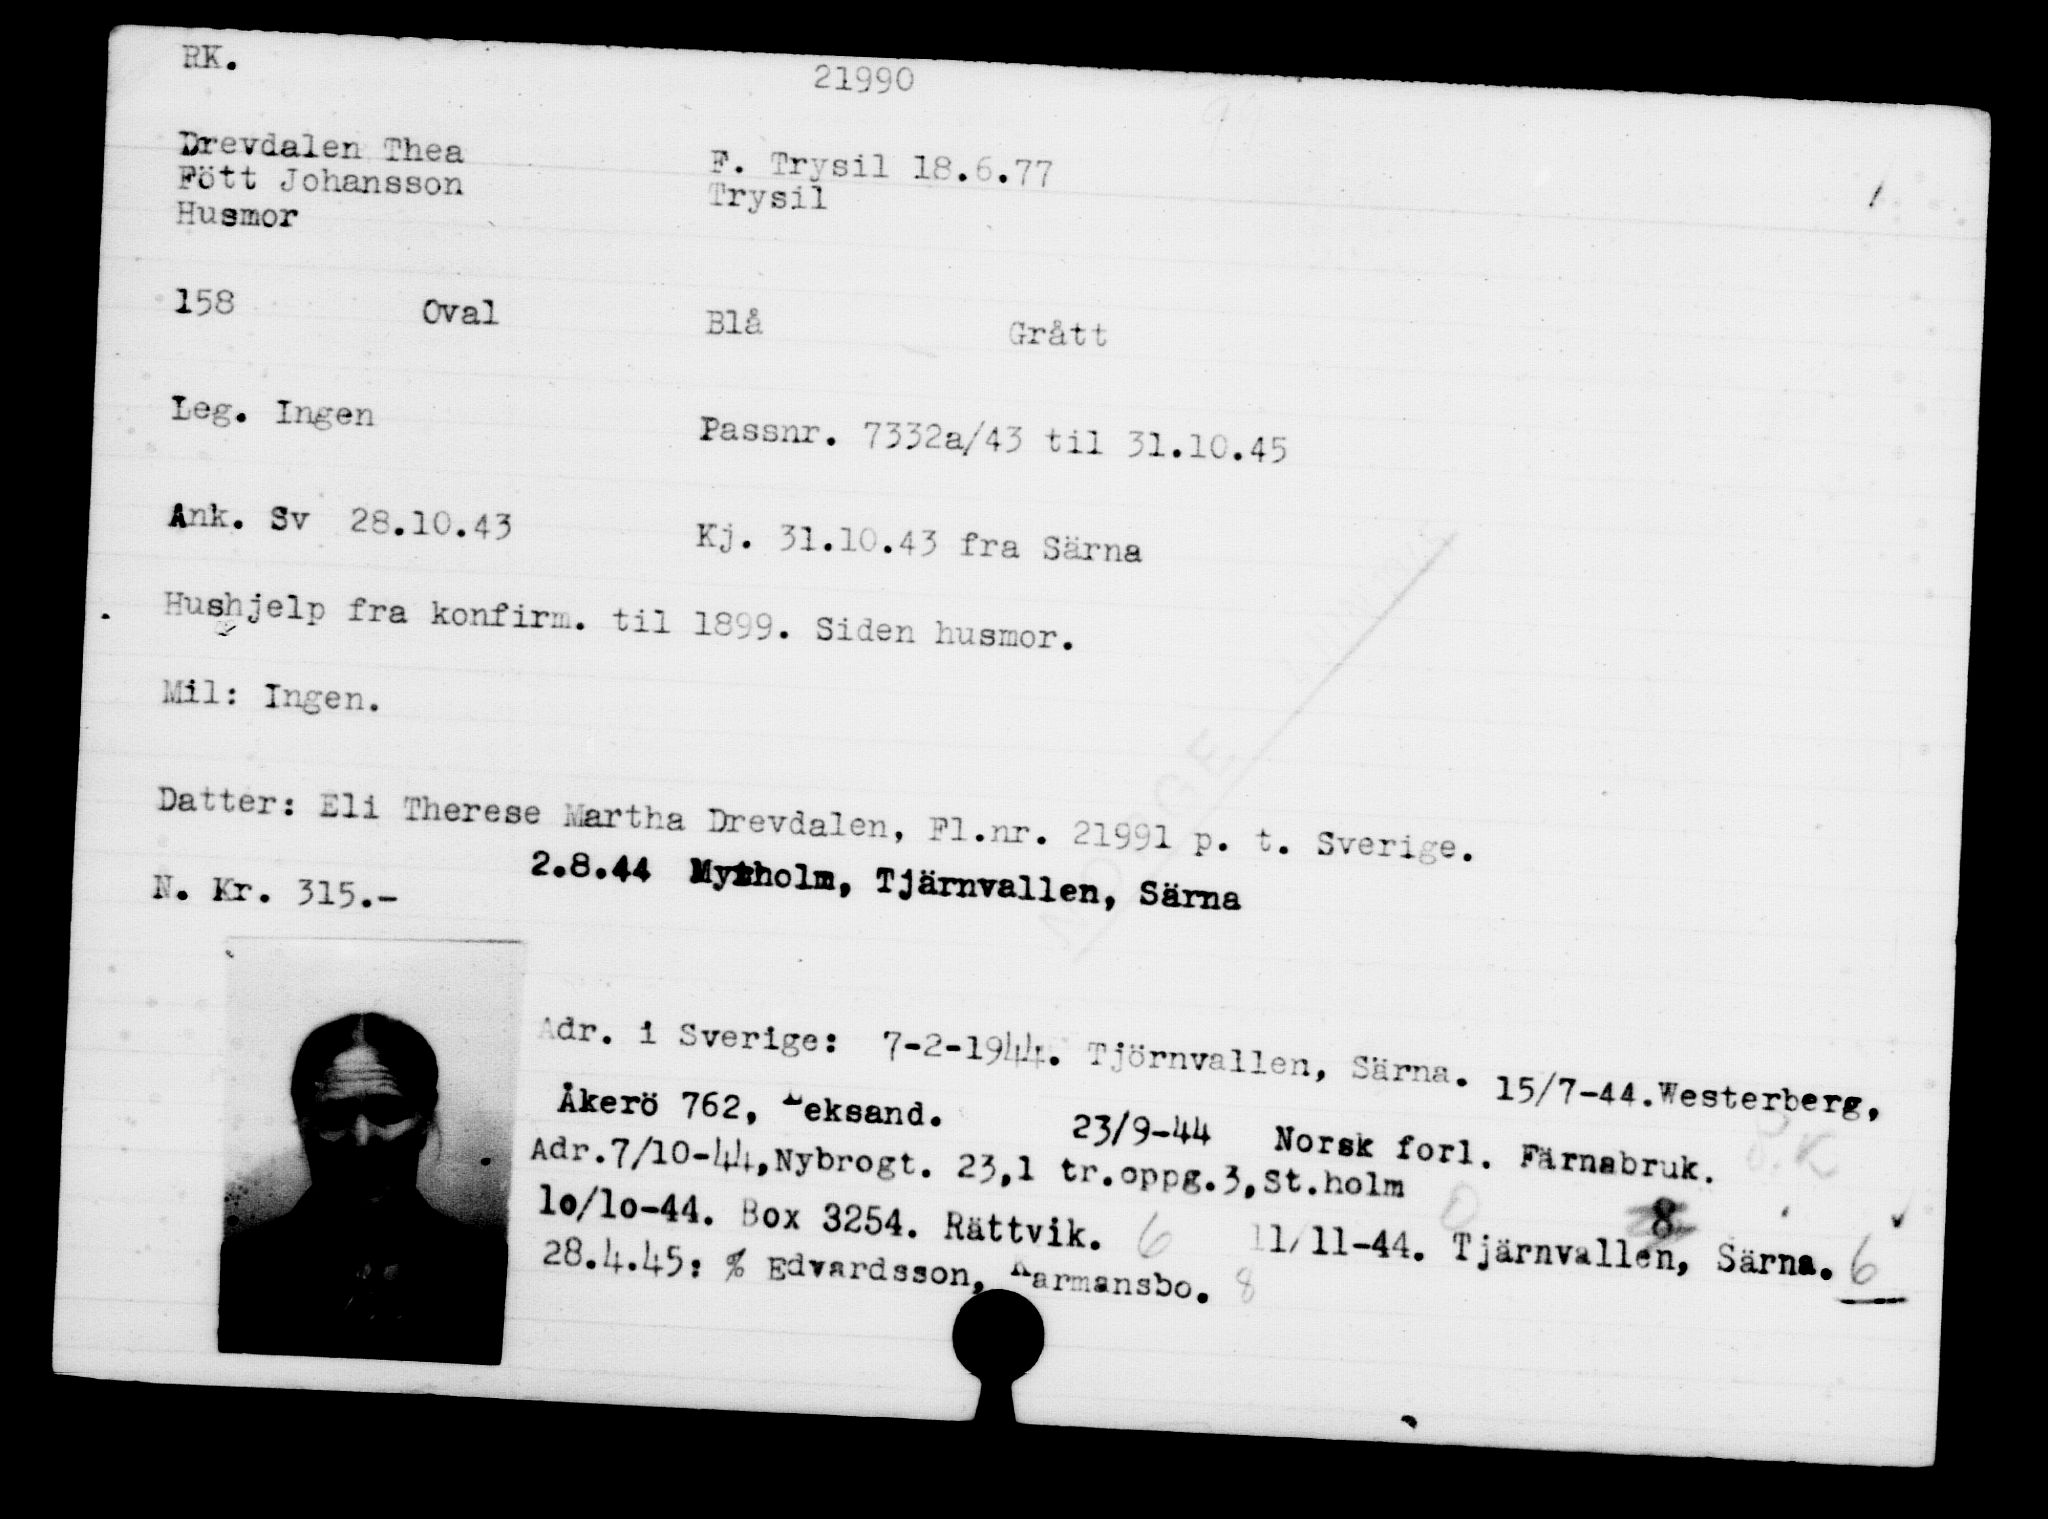 RK.
21990
Drevdalen Thea
F. Trysil 18.6.77
Fött Johansson
Trysil
Husmor
158 Oval Blå Grått
Leg. Ingen
Passnr. 7332a/43 til 31.10.45
Ank. Sv 28.10.43
Kj. 31.10.43 fra Särna
Hushjelp fra konfirm. til 1899. Siden husmor.
Mil: Ingen.
Datter: Eli Therese Martha Drevdalen, Fl.nr. 21991 p. t. Sverige.
2.8.44 Myrholm, Tjärnvallen, Särna
N. Kr. 315.-
Adr. i Sverige: 7-2-1944. Tjörnvallen, Särna. 15/7-44.Westerberg,
Åkerö 762, Leksand. 23/9-44 Norsk forl. Färnabruk.
Adr.7/10-44,Nybrogt. 23,1 tr.oppg.3,St.holm
10/10-44. Box 3254. Rättvik. 6 11/11-44. Tjärnvallen, Särna. 6
8
28.4.45: % Edvardsson, Karmansbo. 8